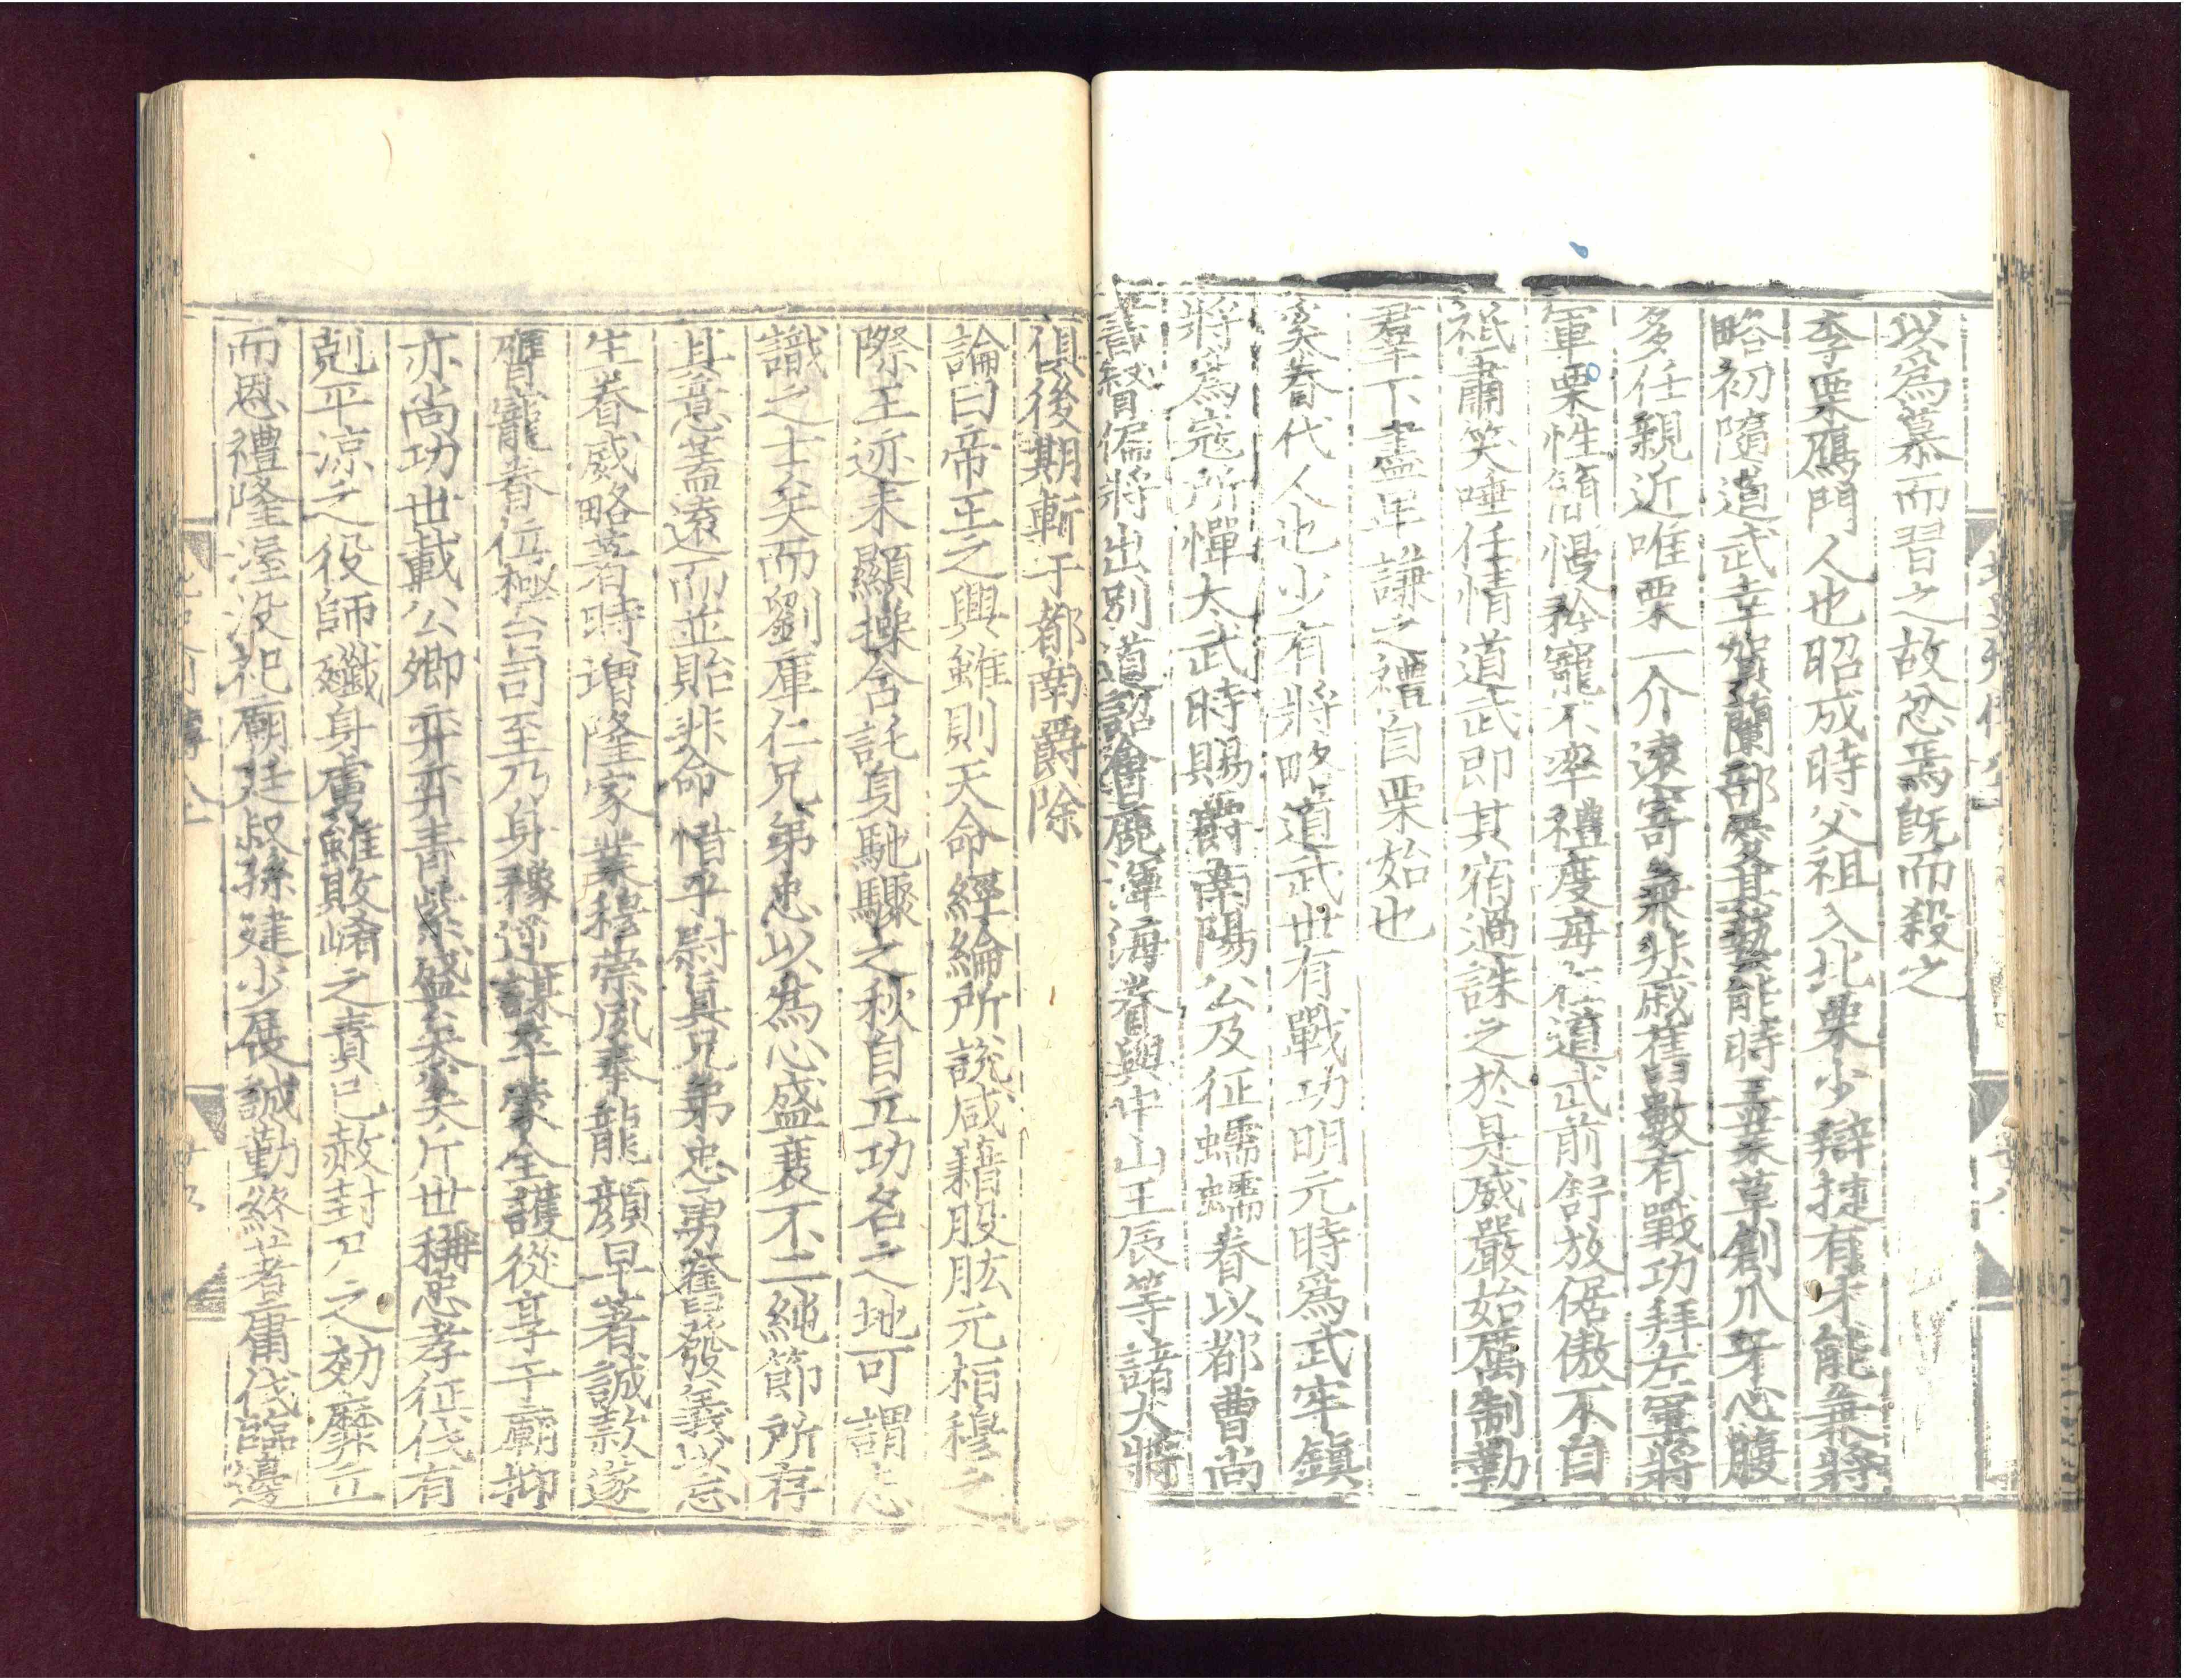 以爲慕而習之故忿焉旣而殺之
李栗鴈門人也昭成時父祖入北栗少辯捷有才能兼將
略初隨道武幸賀蘭部愛其藝能時王業草創爪牙心腹
多任親近唯栗一介遠寄兼非戚舊數有戰功拜左軍將
軍栗性簡慢矜寵不率禮度每在道武前舒放倨傲不自
祗肅笑唾任情道武即其宿過誅之於是威嚴始厲制勒
羣下盡卑謙之禮自栗始也
奚眷代人也少有將略道武世有戰功明元時爲武牢鎮
將爲寇所憚太武時賜爵南陽公及征蠕蠕眷以都曹尚
書督偏將出別道詔會鹿渾海眷與中山王辰等諸大將
俱後期斬于都南爵除
論曰帝王之興雖則天命經綸所說咸藉股肱元桓穆之
際王迹未顯操含託身馳驟之秋自立功名之地可謂志
識之士矣而劉庫仁兄弟忠以爲心盛衰不二純節所存
其意蓋遠而並貽非命惜乎尉眞兄弟忠勇奮發義以忘
生眷威略著時增隆家業穆崇夙奉龍顏早著誠款遂
膺寵眷位極台司至乃身豫逆謀卒蒙全護從享于廟抑
亦尚功世載公卿弈弈青紫盛矣奚斤世稱忠孝征伐有
剋平涼之役師殲身虜雖敗崤之責已赦封尸之効靡立
而恩禮隆渥没祀廟廷叔孫建少展誠勤終著庸伐臨邊